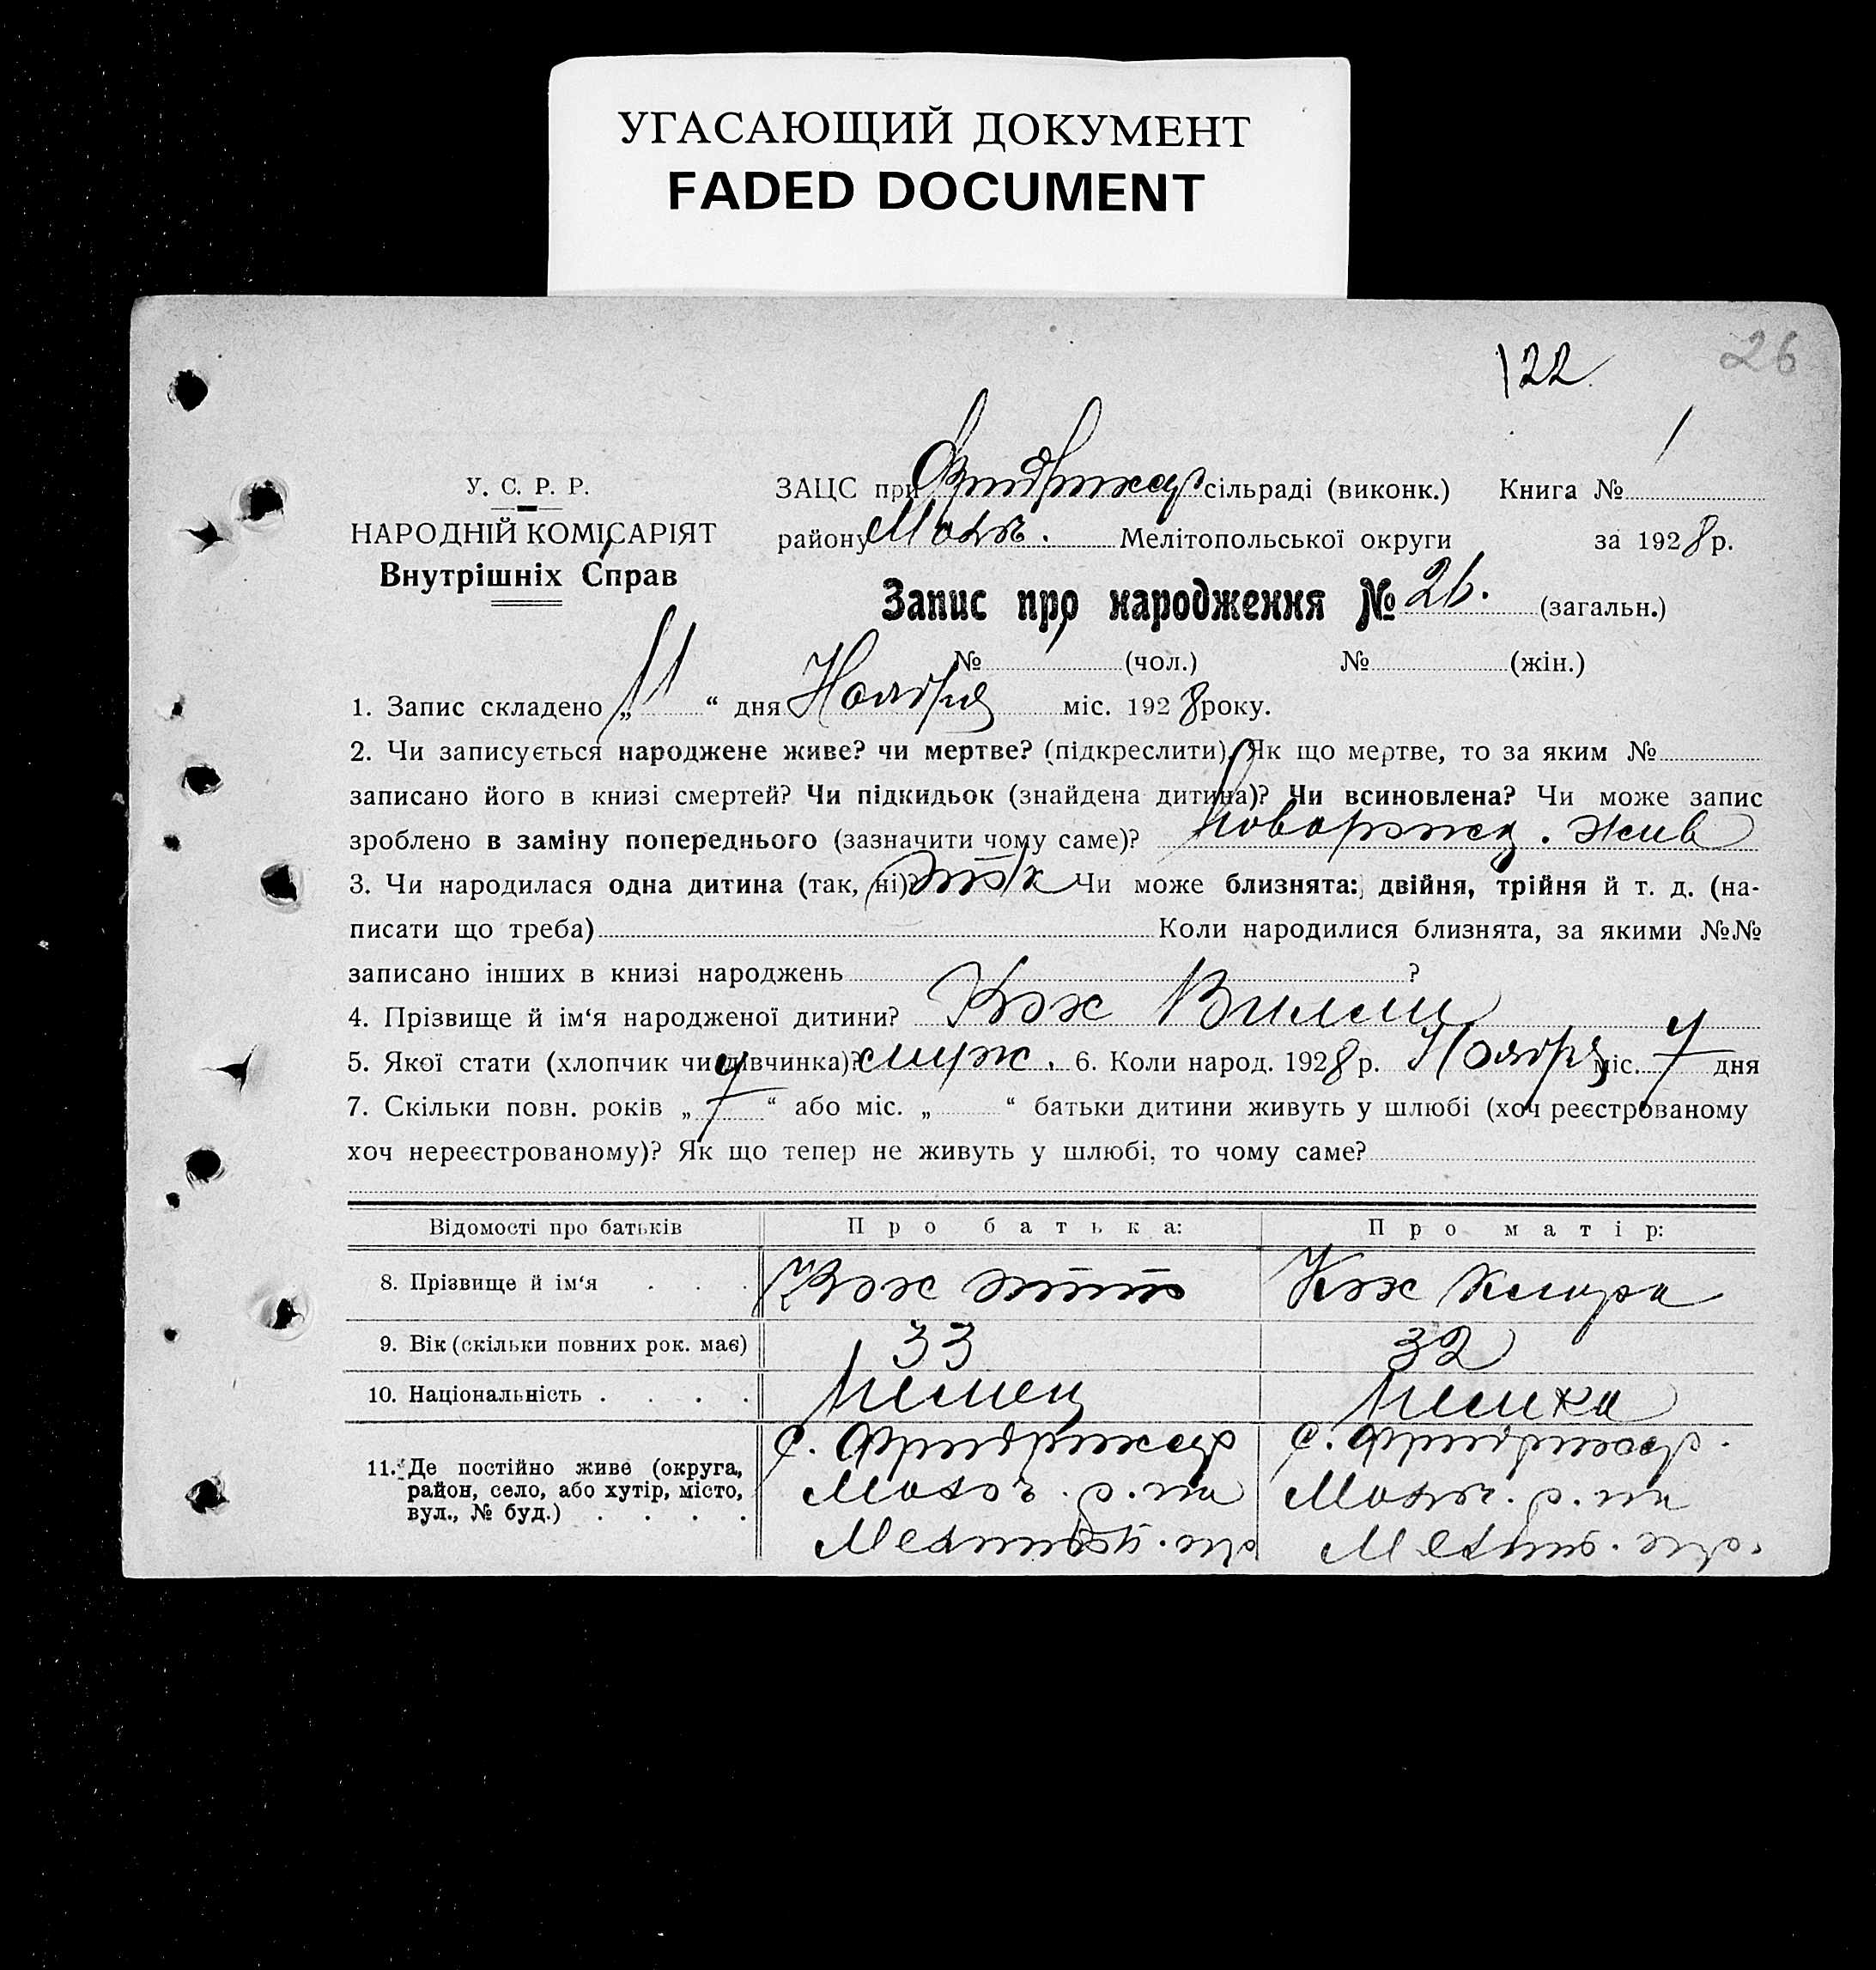 УГАСАЮЩИЙ ДОКУМЕНТ
FADED DOCUMENT
122.
26
У. С. Р. Р.
НАРОДНІЙ КОМІСАРІЯТ
Внутрішніх Справ
ЗАЦС при сільраді (виконк.) Книга № 1
району Молоч. Мелітопольської округи за 1928 р.
Запис про народження № 26. (загальн.)
№ (чол.) № (жін.)
1. Запис складено „11“ дня Ноября міс. 1928 року.
2. Чи записується народжене живе? чи мертве? (підкреслити). Як що мертве, то за яким №
записано його в книзі смертей? Чи підкидьок (знайдена дитина)? Чи всиновлена? Чи може запис
зроблено в заміну попереднього (зазначити чому саме)? Новорожд. жив
3. Чи народилася одна дитина (так, ні)? так Чи може близнята: двійня, трійня й т. д. (на-
писати що треба) Коли народилися близнята, за якими №№
записано інших в книзі народжень ?
4. Прізвище й ім‘я народженої дитини? Кох Вилли
5. Якої стати (хлопчик чи дівчинка)? муж. 6. Коли народ. 1928 р. Ноября міс. 7 дня
7. Скільки повн. років „7“ або міс. „ “ батьки дитини живуть у шлюбі (хоч реєстрованому
хоч нереєстрованому)? Як що тепер не живуть у шлюбі, то чому саме?
Відомості про батьків Про батька: Про матір:
8. Прізвище й ім‘я . . . Кох Отто Кох Клара
9. Вік (скільки повних рок. має) 33 32
10. Національність . . . . Немец Немка
11. Де постійно живе (округа, с. с.
район, село, або хутір, місто, Молоч. р.на Молоч. р.на
вул., № буд.) . . . . Мелитоп. окр Мелит. окр.